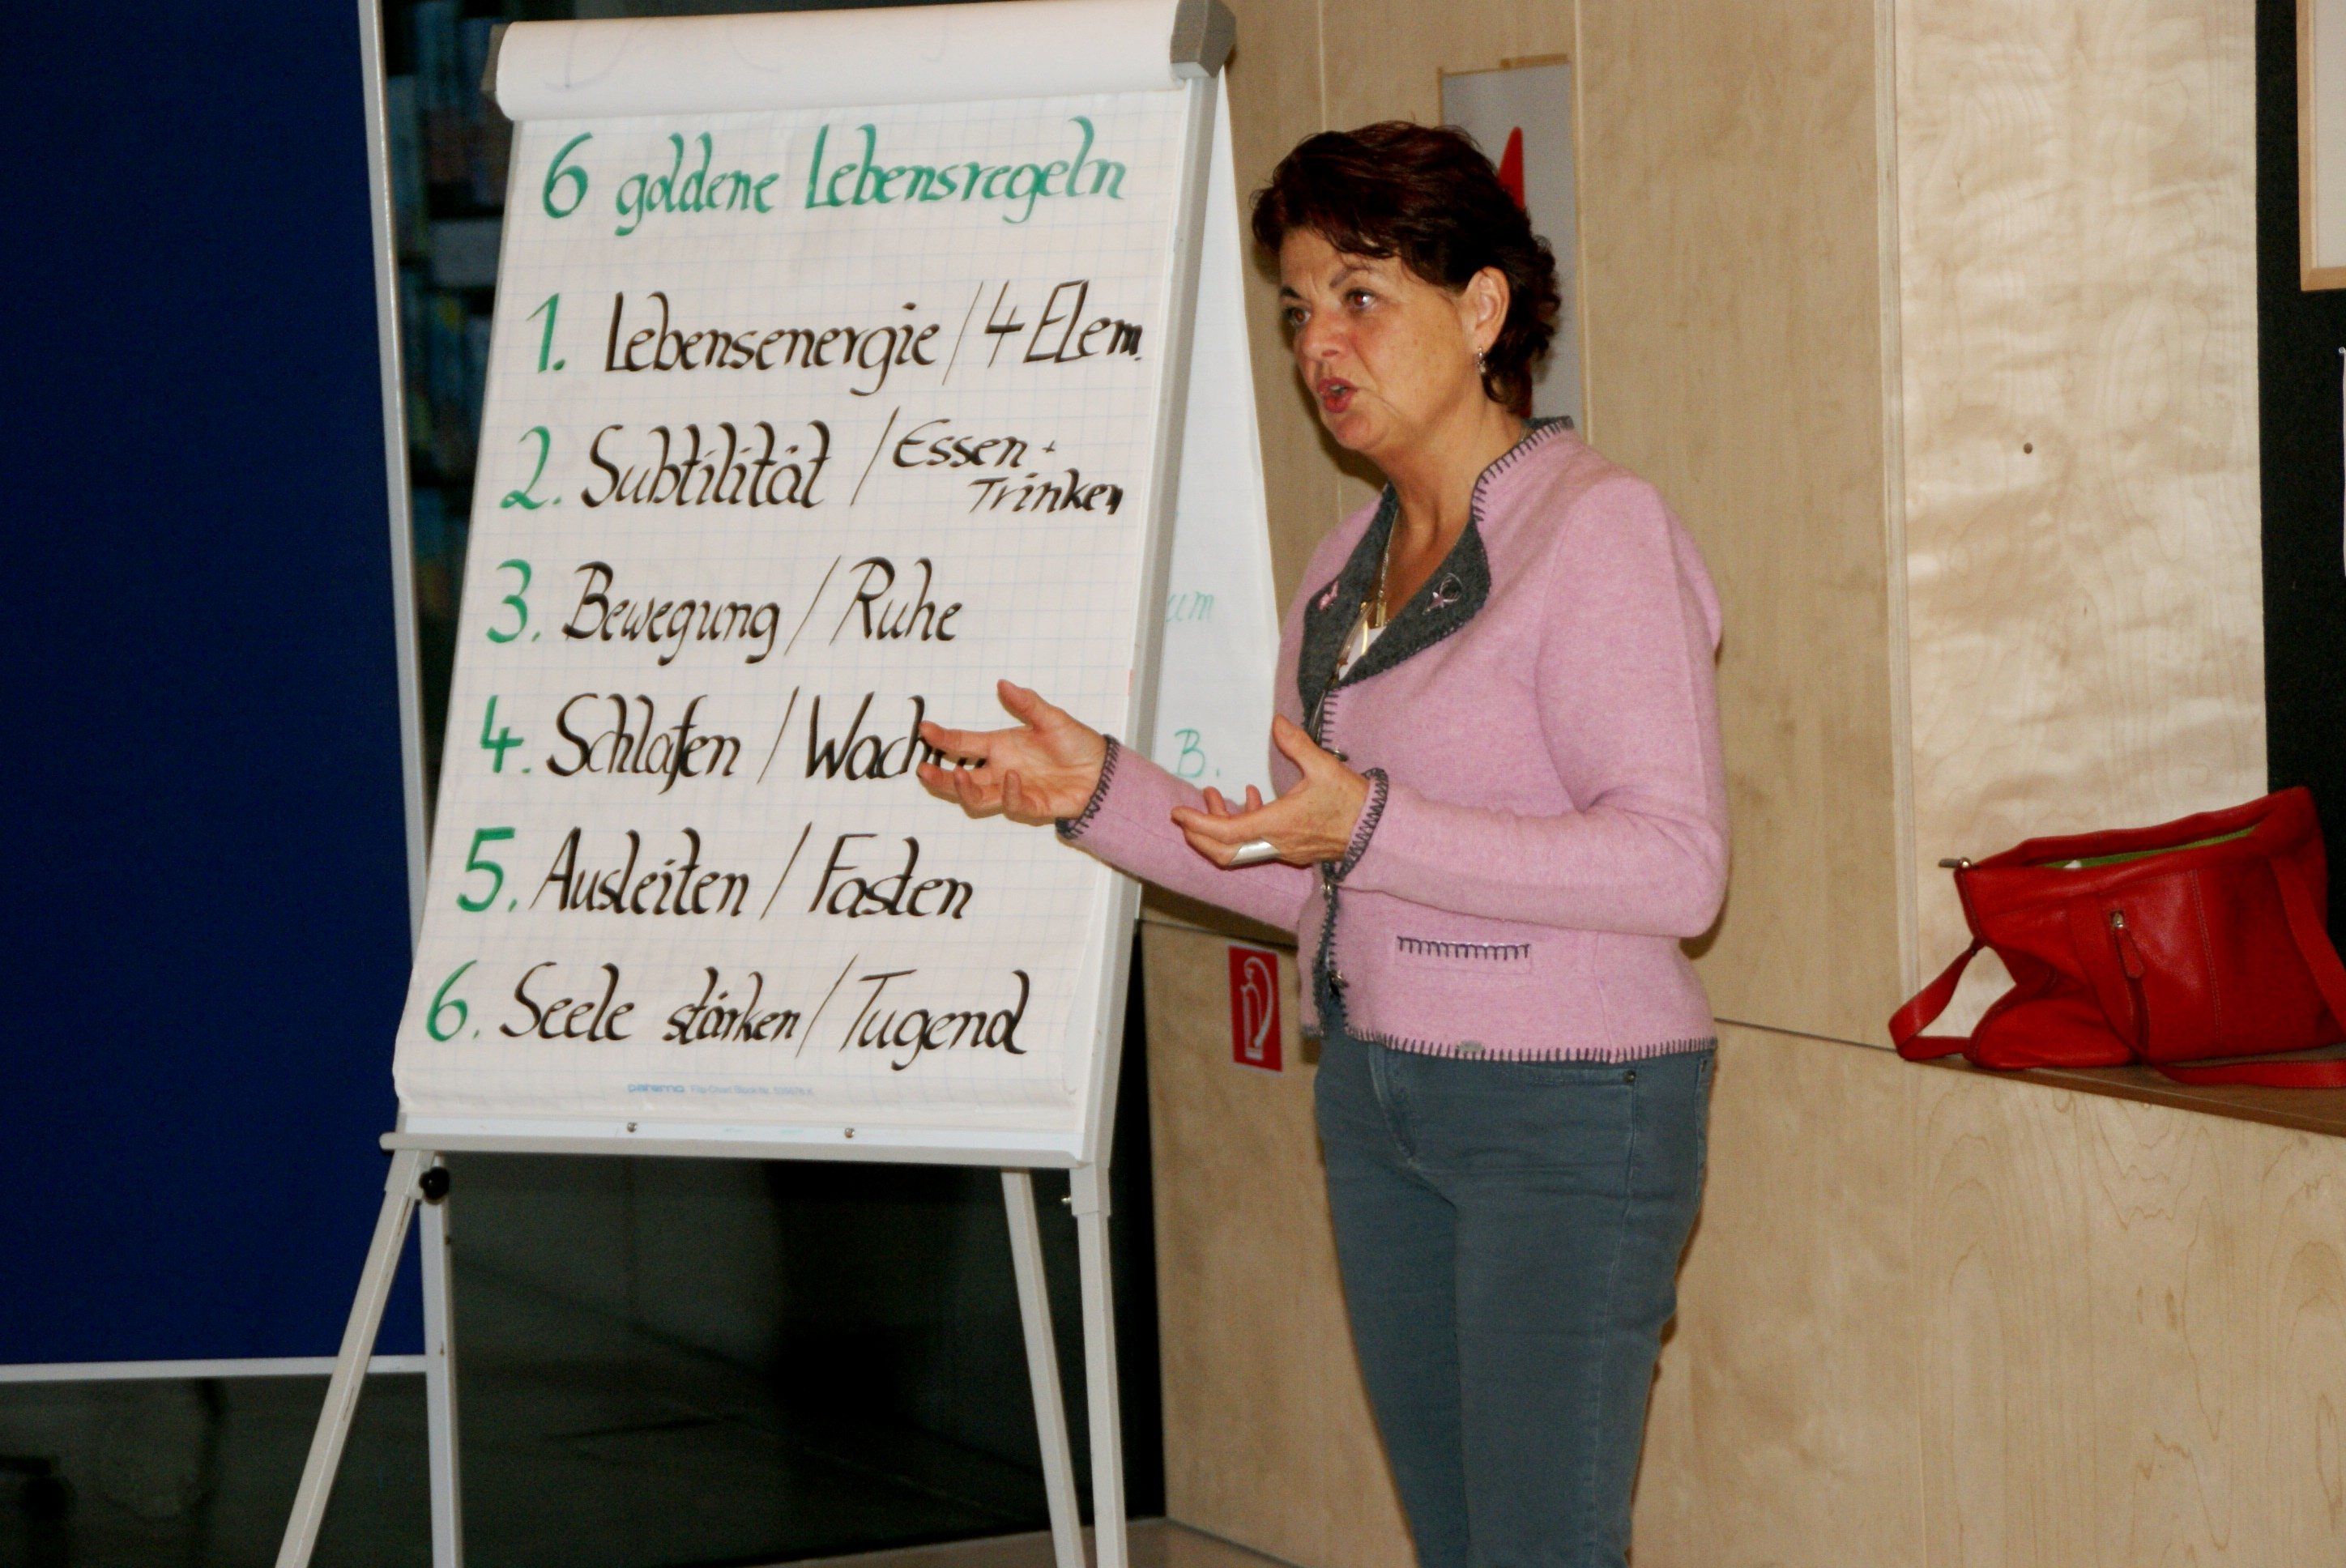 6 goldene Lebensregeln
1. Lebensenergie / 4 Elem.
2. Subtilität / Essen +
Trinken
3. Bewegung / Ruhe
4. Schlafen /
5. Ausleiten / Fasten
6. Seele stärken / Tugend
um
B.